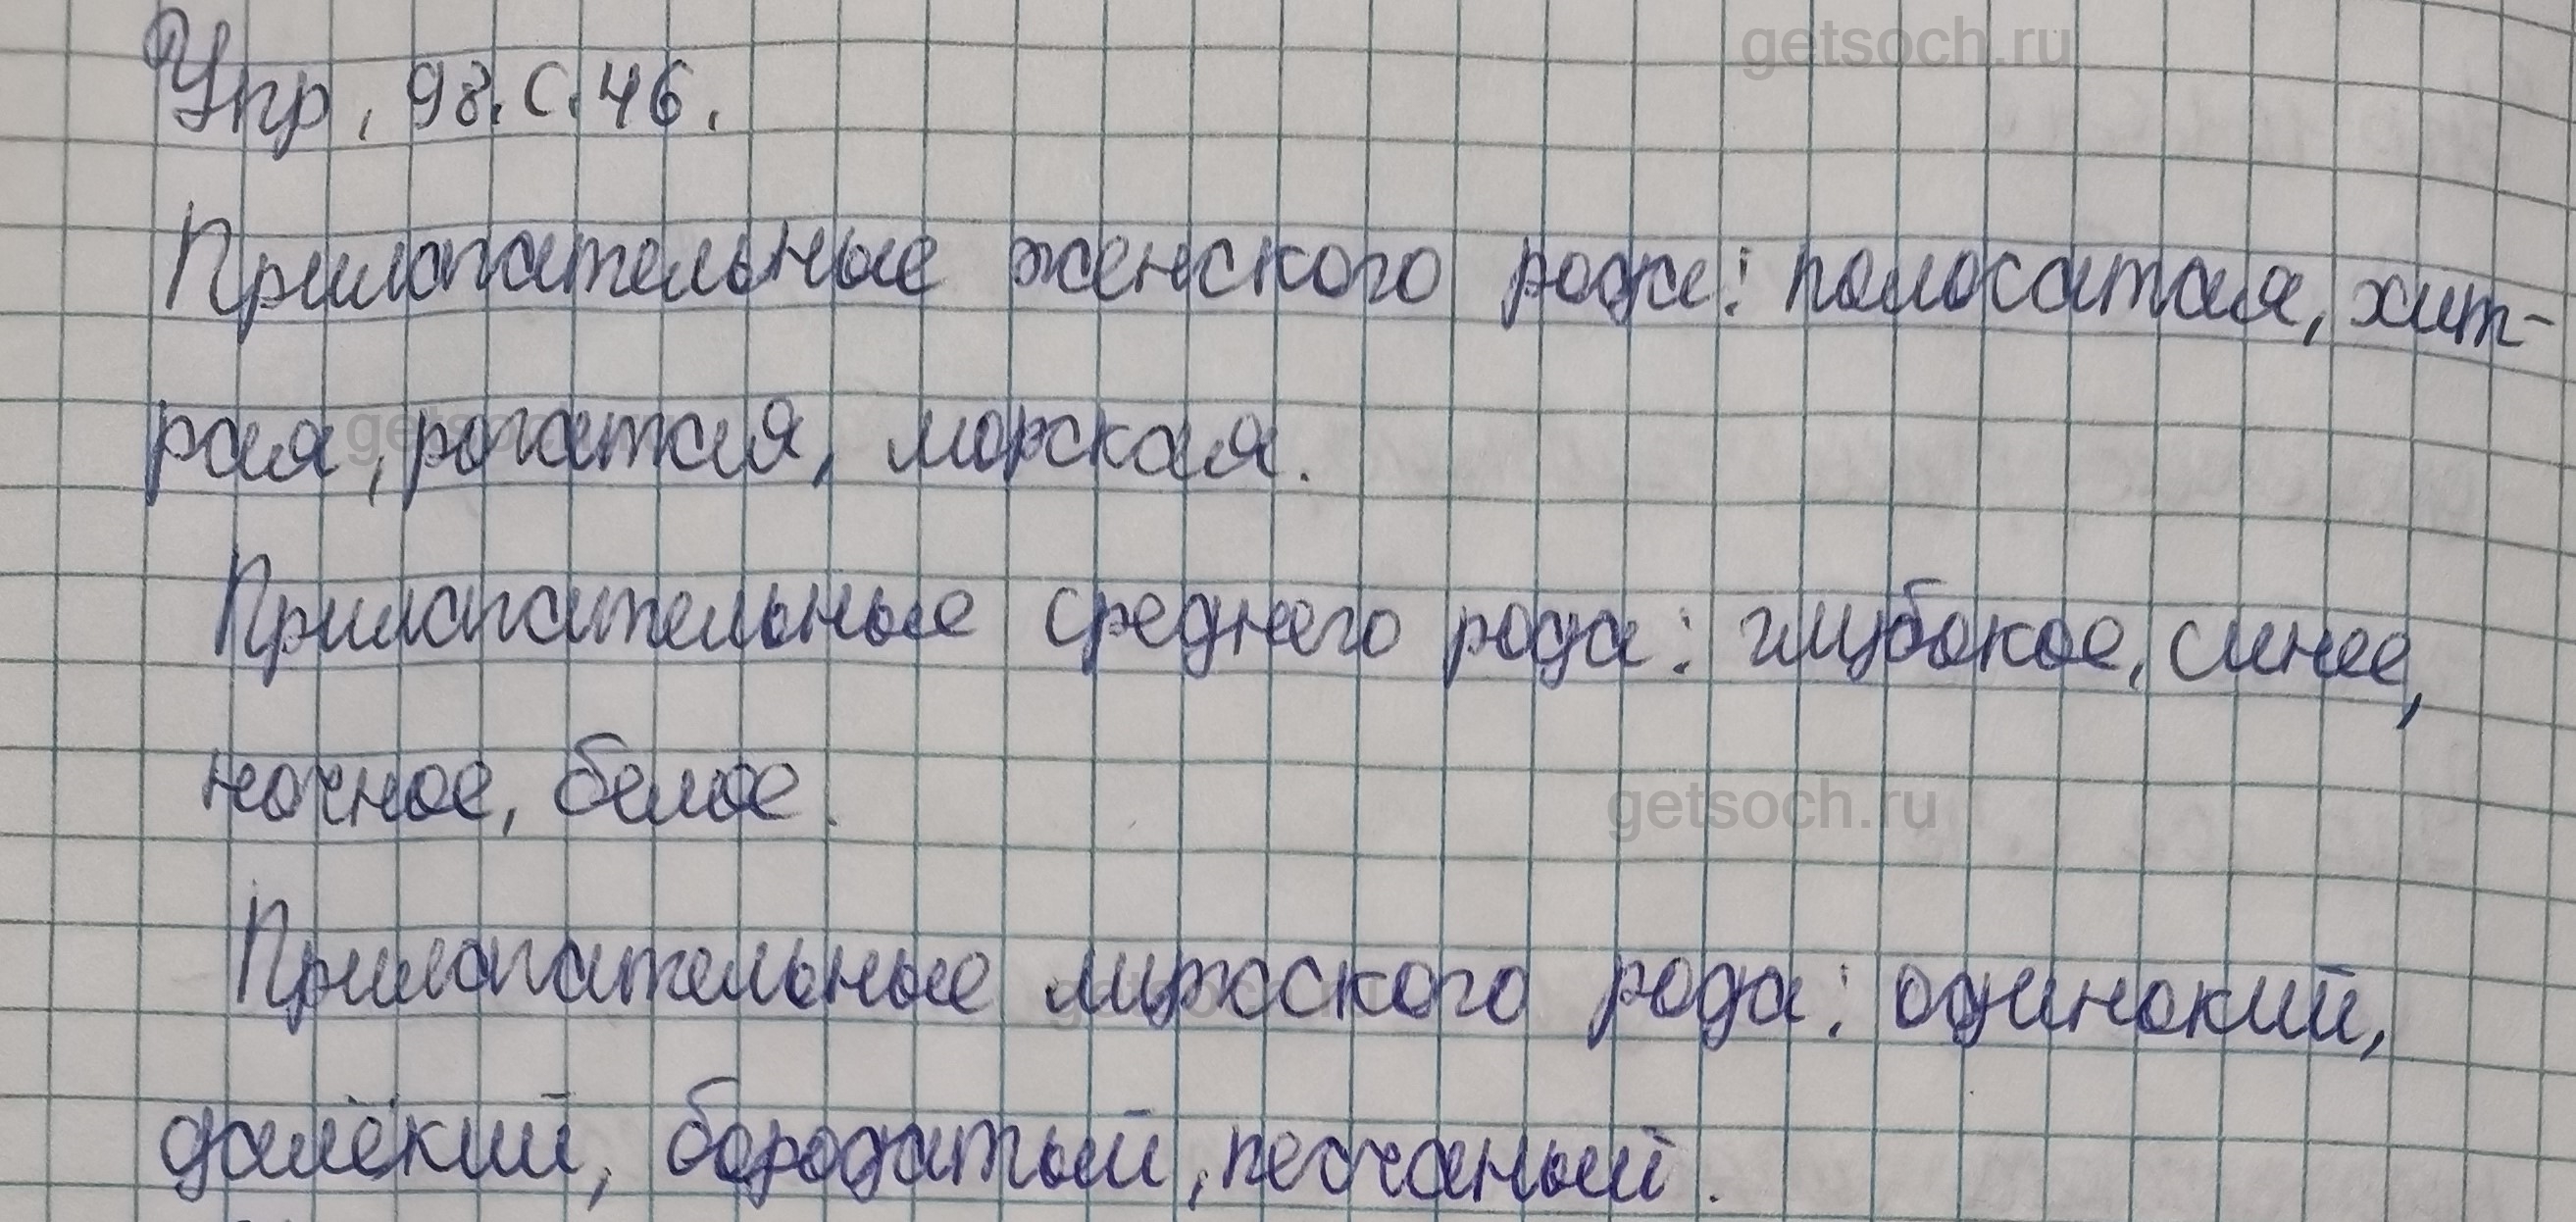 getsoch.ru
Упр. 98. С. 46.
Прилагательные женского рода: полосатая, хит-
рая, рогатая, морская.
Прилагательные среднего рода: глубокое, синее,
ночное, белое.
getsoch.ru
Прилагательные мужского рода: одинокий,
далёкий, бородатый, песчаный.